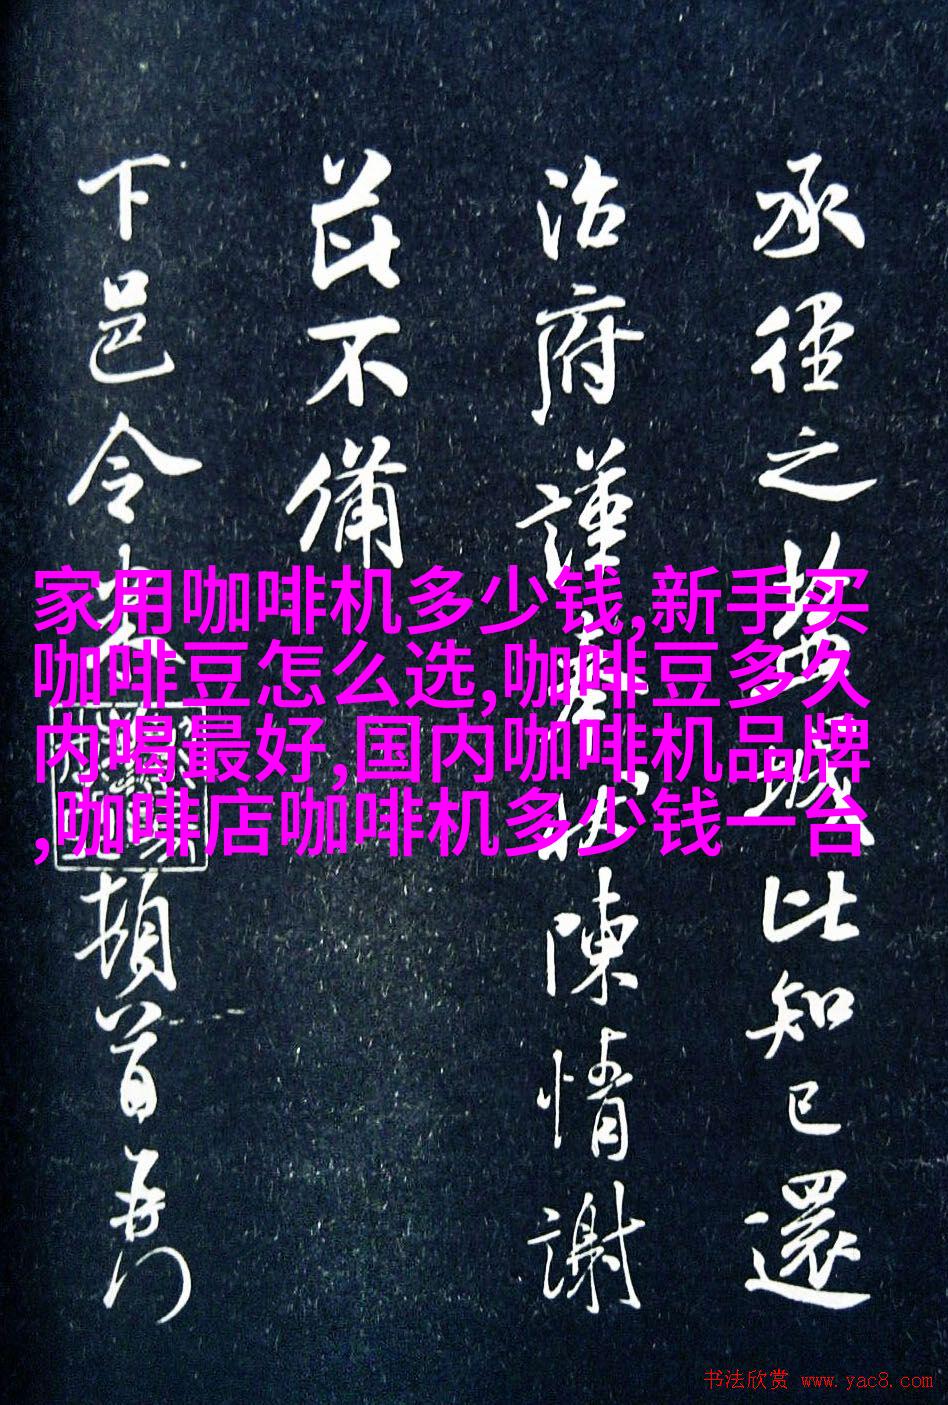 承徑之
比知己還
治府謹
陳情謝
茲不備
下邑令
頓首再
家用咖啡机多少钱,新手买
咖啡豆怎么选,咖啡豆多久
内喝最好,国内咖啡机品牌
,咖啡店咖啡机多少钱一台
书法欣赏 www.yac8.com